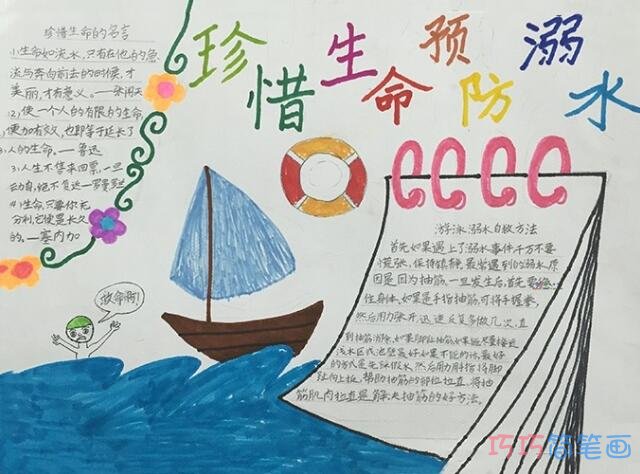 珍惜生命 预防溺水
珍惜生命的名言
1,生命如流水,只有在他的急
流与奔向前去的时候,才
美丽,才有意义。——张闻天
(2)使一个人的有限的生命,
更加有效,也即等于延长了
人的生命。——鲁迅
3,人生不售来回票,一旦
动身,绝不复返——罗曼罗兰
4)生命,只要你充
分利,它便是长久
的。——塞内加
救命啊!
游泳溺水自救方法
首先如果遇上了溺水事件千万不要
慌张,保持镇静,最常遇到的溺水原
因是因为抽筋,一旦发生后,首先要
住身体,如果是手指抽筋,可将手握拳,
然后用力张开,迅速反复多做几次,直
到抽筋消除,如果脚趾抽筋
浅水区或池壁最好,如果不能的话,最好
的方式是先深假水,然后用力
趾向上扳,帮助抽筋的部位拉直,将抽
筋肌肉拉直是解决抽筋的好方法。
巧巧简笔画